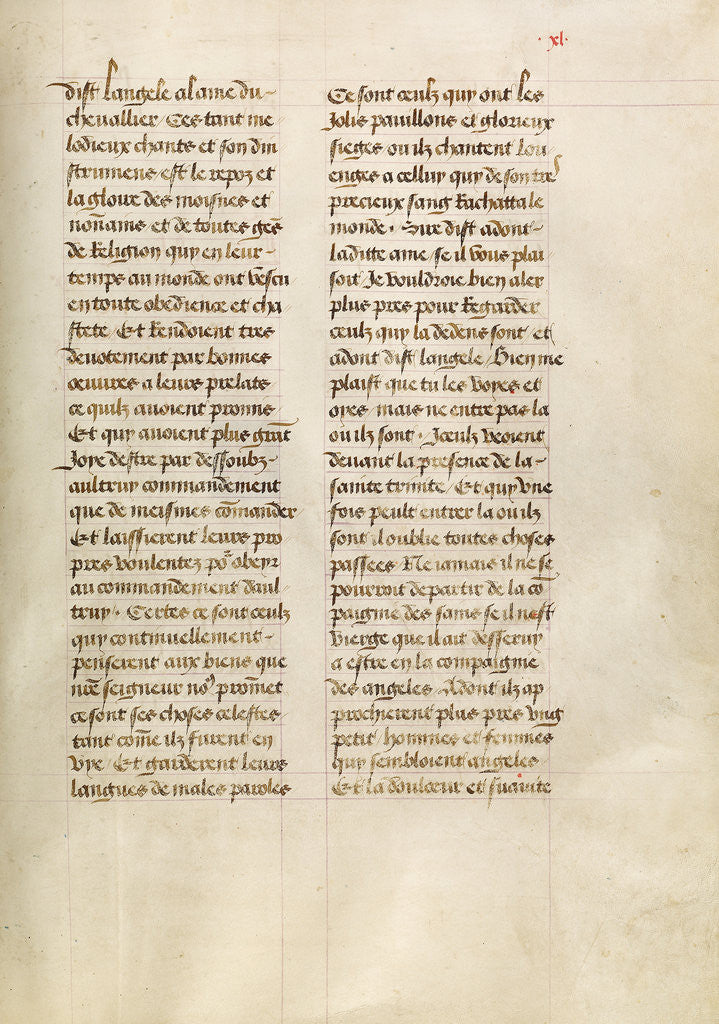 ·xl·
dist langele al ame du
chevallier / Ces tant me
lodieux chants et son din
strumens est le repoz et
la gloire des moisnes et
nonains et de toutes ges̄
de Religion quy en leur
temps au monde ont vescu
en toute obedience et cha
stete / Et Rendoient tres
devotement par bonnes
œuvres a leurs prelats
ce quilz avoient promis
Et quy avoient plus grāt
Joye destre par dessoubz
aultruy commandement
que de meismes cōmander
Et laissierent leurs pro
pres voulentez po᷑ obeyr
au commandement daul
truy · Certes ce sont ceulz
quy continuellement
penserent aux biens que
nr̄e seigneur no⁹ promet
ce sont ses choses celestes
tant com̄e ilz furent en
vye / Et garderent leurs
langues de males paroles
Ce sont ceulz quy ont les
Jolis pavillons et glorieux
sieges ou ilz chantent lou
enges a celluy quy de son tres
precieux sang Rachatta le
monde · Sire dist adont
laditte ame / se il vous plai
soit Je vouldroie bien aler
plus pres pour Regarder
ceulz quy la dedens sont / et
adont dist langele / Bien me
plaist que tu les voyes et
oyes / mais ne entre pas la
ou ilz sont · Iceulz veoient
devant la presence de la
sainte trinite / Et quy vne
fois peult entrer la ou ilz
sont il oublie toutes choses
passees Ne iamais il ne se
pourroit departir de la cō
paignie des sains se il nest
vierge que il ait desservy
a estre en la compaignie
des angeles / Adont ilz ap
prochierent plus pres vng
petit / hommes et femmes
quy sembloient angeles
Et la doulceur et suavite